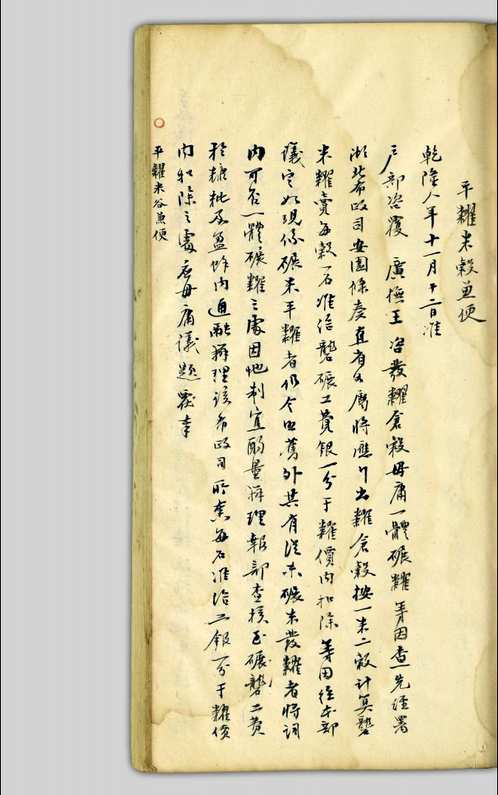 平糶米穀兼便
乾隆八年十一月十二日准
戶部咨覆廣撫王咨發糶倉穀毋庸一體碾糶等因查先經署
湖北布政司安圖條奏直省各屬將應行出糶倉穀按一米二穀計算礱
米糶賣每穀一石准給礱碾工費銀一分于糶價內扣除等因經本部
議定如現係碾米平糶者仍令照舊外其有從未碾米發糶者將詞
內可否一體碾糶之處因地制宜酌量辦理報部查核至碾礱工費
於糠粃及盈餘內通融辦理該布政司所奏每石准給工銀一分于糶價
內扣除之處應毋庸議題覆奉
平糶米谷兼便